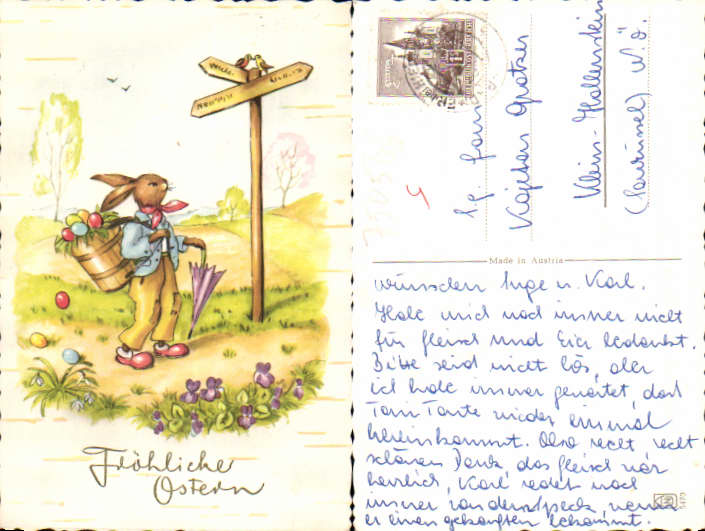 Fröhliche
Ostern
S.g. Fam.
Kajetan
Klein-Hollenstein
N.Ö.
Made in Austria
wünschen Inge u. Karl.
Habe mich noch immer nicht
für Fleisch und Eier bedankt.
Bitte seid nicht bös, aber
ich habe immer gewartet, das
Tante wieder einmal
hereinkommt. Also recht, recht
schönen Dank, das Fleisch war
herrlich, Karl redet noch
immer von dem Speck, wenn
er einen gekauften bekommt.
4